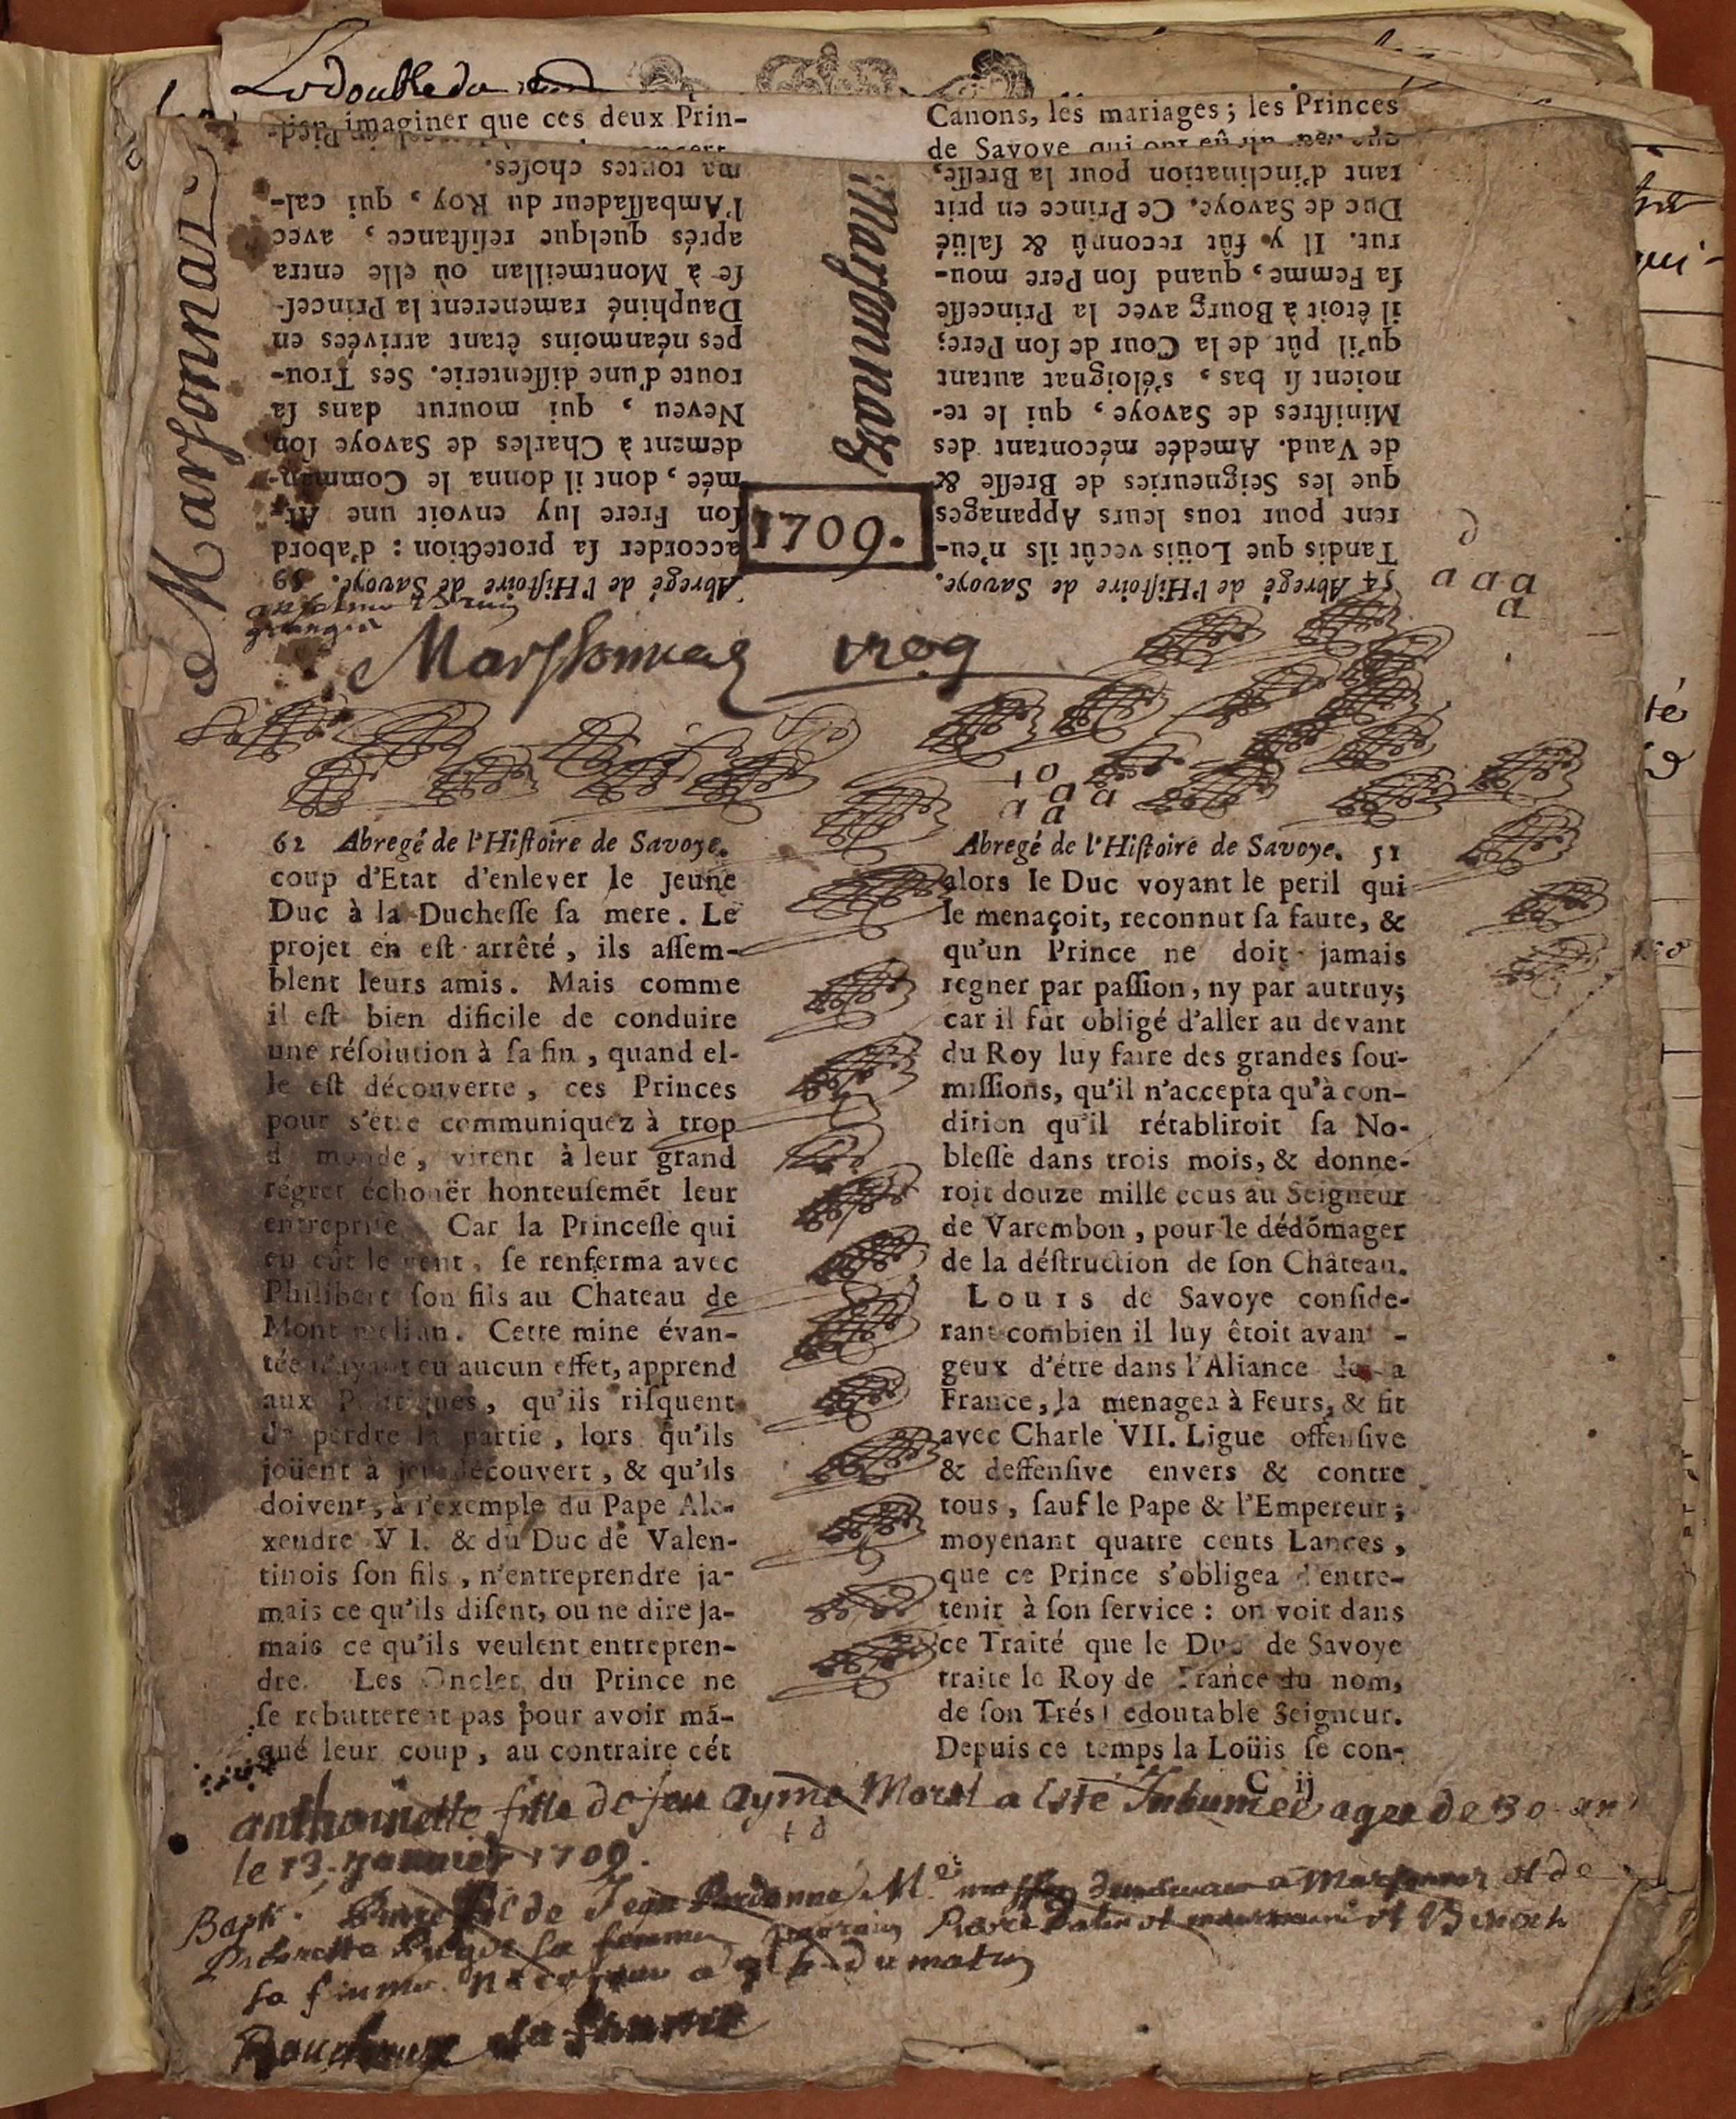 Le double du
imaginer que ces deux Prin-
Canons, les mariages; les Princes
de Savoye qui ont eû
Marsonnas
Marsonnaz
1709.
Abregé de l'Histoire de Savoye. 59
accorder sa protection : d'abord
son Frere luy envoit une Ar-
mée, dont il donna le Comman-
dement à Charles de Savoye son
Neveu, qui mourut dans sa
route d'une dissenterie. Ses Trou-
pes néanmoins êtant arrivées en
Dauphiné ramenerent la Princes-
se à Montmeillan où elle entra
aprés quelque resistance, avec
l'Ambassadeur du Roy, qui cal-
ma toutes choses.
54 Abregé de l'Histoire de Savoye.
Tandis que Loüis vecût ils n'eu-
rent pour tous leurs Appanages
que les Seigneuries de Bresse &
de Vaud. Amedée mécontant des
Ministres de Savoye, qui le te-
noient si bas, s'éloignat autant
qu'il pût de la Cour de son Pere;
il êtoit à Bourg avec la Princesse
sa Femme, quand son Pere mou-
rut. Il y fût reconnû & salüé
Duc de Savoye. Ce Prince en prit
tant d'inclination pour la Bresse,
a a a
a
Marssonnas 1709
a a a
a
62 Abregé de l'Histoire de Savoye.
coup d'Etat d'enlever le jeune
Duc à la Duchesse sa mere. Le
projet en est arrêté, ils assem-
blent leurs amis. Mais comme
il est bien dificile de conduire
une résolution à sa fin, quand el-
le est découverte, ces Princes
pour s'être communiquez à trop
de monde, virent à leur grand
régret échoüer honteusemēt leur
entreprise. Car la Princesse qui
en eût le vent, se renferma avec
Philibert son fils au Chateau de
Montmelian. Cette mine évan-
tée n'ayant eu aucun effet, apprend
aux Politiques, qu'ils risquent
de perdre la partie, lors qu'ils
joüent à jeu découvert, & qu'ils
doivent, à l'exemple du Pape Ale-
xendre VI. & du Duc de Valen-
tinois son fils, n'entreprendre ja-
mais ce qu'ils disent, ou ne dire ja-
mais ce qu'ils veulent entrepren-
dre. Les Oncles du Prince ne
se rebutterent pas pour avoir mā-
qué leur coup, au contraire cét
Abregé de l'Histoire de Savoye. 51
alors le Duc voyant le peril qui
le menaçoit, reconnut sa faute, &
qu'un Prince ne doit jamais
regner par passion, ny par autruy;
car il fût obligé d'aller au devant
du Roy luy faire des grandes sou-
missions, qu'il n'accepta qu'à con-
dition qu'il rétabliroit sa No-
blesse dans trois mois, & donne-
roit douze mille ecus au Seigneur
de Varembon, pour le dédōmager
de la déstruction de son Château.
Louis de Savoye conside-
rant combien il luy êtoit avanta-
geux d'être dans l'Aliance de la
France, la menagea à Feurs, & fit
avec Charle VII. Ligue offensive
& deffensive envers & contre
tous, sauf le Pape & l'Empereur;
moyenant quatre cents Lances,
que ce Prince s'obligea d'entre-
tenir à son service : on voit dans
ce Traité que le Duc de Savoye
traite le Roy de France du nom,
de son Trés redoutable Seigneur.
Depuis ce temps la Loüis se con-
C ij
anthoinette fille de feu ayme Morel a Esté Inhumeé agee de 30 an
le 13. Janvier 1709.
Bapt. Pierre fils de Jean
sa femme
sa femme du matin